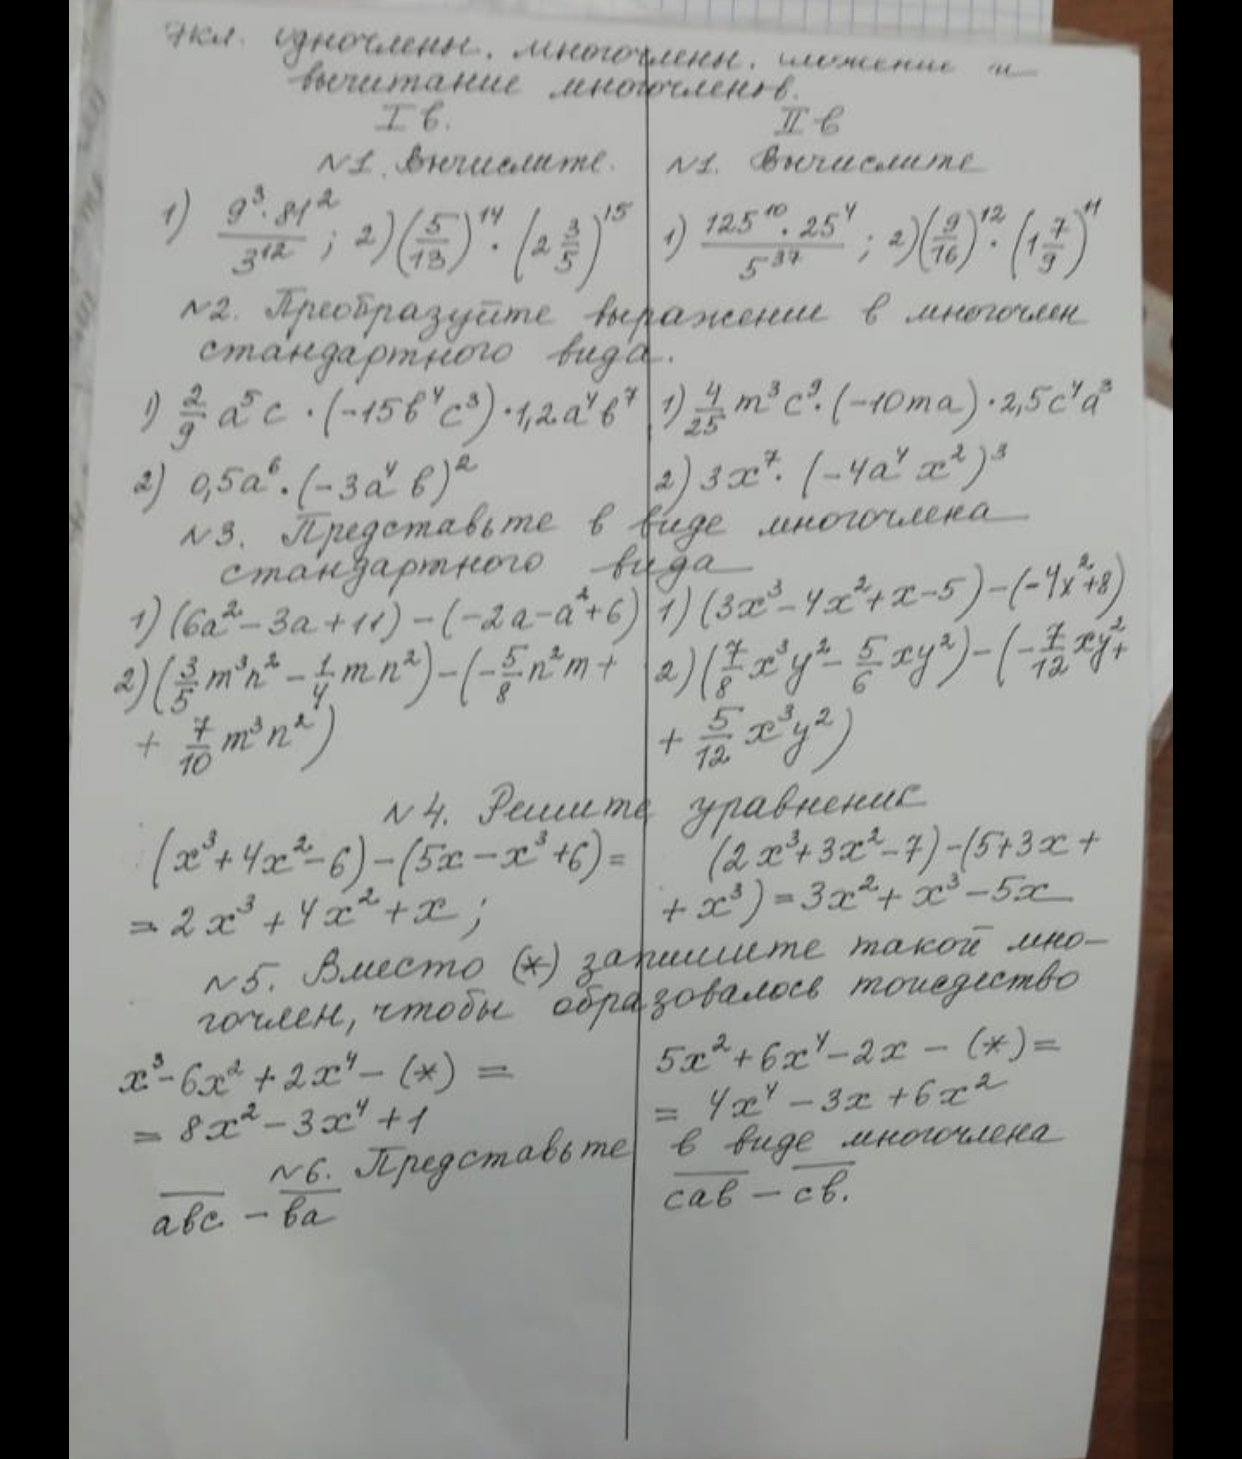 7кл. Одночлены. многочлены. сложение и
вычитание многочленов.
I в.
№1. Вычислите.
1) \frac{9^3·81^2}{3^{12}}; 2) (\frac{5}{13})^{14}·(2\frac{3}{5})^{15}
II в
№1. Вычислите
1) \frac{125^{10}·25^4}{5^{37}}; 2) (\frac{9}{16})^{12}·(1\frac{7}{9})^{11}
№2. Преобразуйте выражение в многочлен
стандартного вида.
1) \frac{2}{9}a^5c·(-15b^4c^3)·1,2a^4b^7
2) 0,5a^6·(-3a^4b)^2
1) \frac{4}{25}m^3c^9·(-10ma)·2,5c^4a^3
2) 3x^7·(-4a^4x^2)^3
№3. Представьте в виде многочлена
стандартного вида
1) (6a^2-3a+11)-(-2a-a^2+6)
2) (\frac{3}{5}m^3n^2-\frac{1}{4}mn^2)-(-\frac{5}{8}n^2m+
+\frac{7}{10}m^3n^2)
1) (3x^3-4x^2+x-5)-(-4x^2+8)
2) (\frac{7}{8}x^3y^2-\frac{5}{6}xy^2)-(-\frac{7}{12}xy^2+
+\frac{5}{12}x^3y^2)
№4. Решите уравнение
(x^3+4x^2-6)-(5x-x^3+6)=
=2x^3+4x^2+x;
(2x^3+3x^2-7)-(5+3x+
+x^3)=3x^2+x^3-5x
№5. Вместо (*) запишите такой мно-
гочлен, чтобы образовалось тождество
x^3-6x^2+2x^4-(*)=
=8x^2-3x^4+1
5x^2+6x^4-2x-(*)=
=4x^4-3x+6x^2
№6. Представьте в виде многочлена
\overline{abc}-\overline{ba}
\overline{cab}-\overline{cb}.